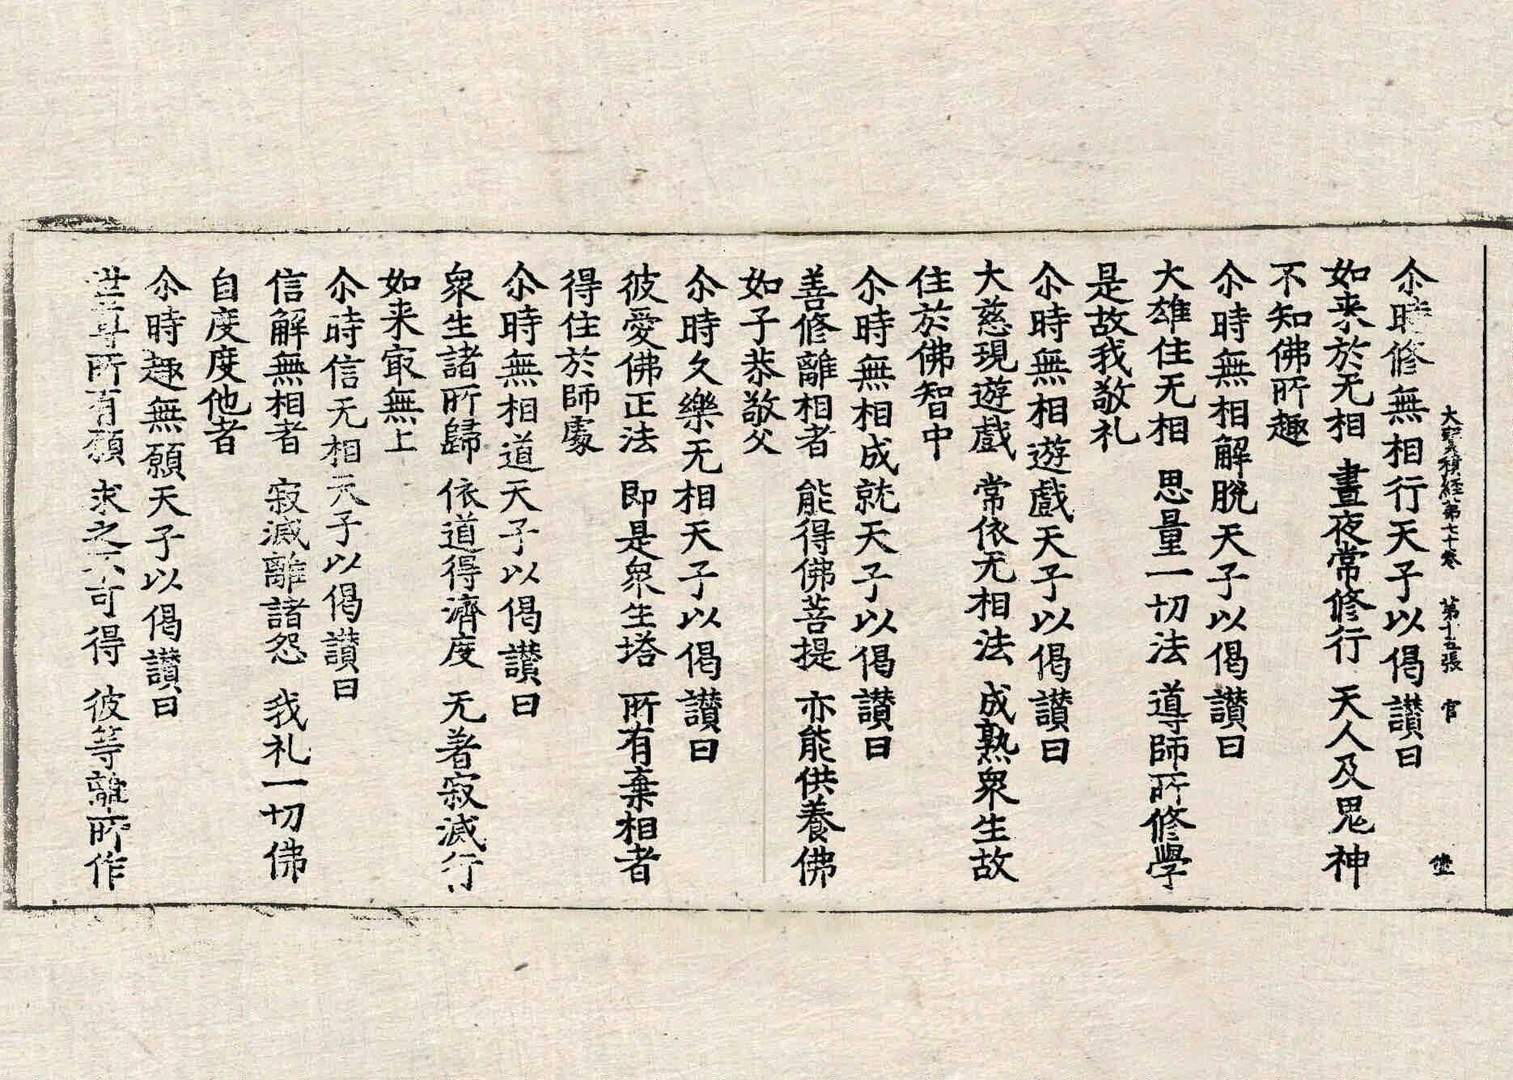 大寳積經第七十卷　第十五張　官
尒時修無相行天子以偈讃曰
如来於无相　晝夜常修行　天人及鬼神
不知佛所趣
尒時無相解脫天子以偈讃曰
大雄住无相　思量一切法　導師所修學
是故我敬礼
尒時無相遊戲天子以偈讃曰
大慈現遊戲　常依无相法　成熟衆生故
住於佛智中
尒時無相成就天子以偈讃曰
善修離相者　能得佛菩提　亦能供養佛
如子恭敬父
尒時久樂无相天子以偈讃曰
彼愛佛正法　即是衆生塔　所有棄相者
得住於師處
尒時無相道天子以偈讃曰
衆生諸所歸　依道得濟度　无著寂滅行
如来冣無上
尒時信无相天子以偈讃曰
信解無相者　寂滅離諸怨　我礼一切佛
自度度他者
尒時趣無願天子以偈讃曰
世尊所有願　求之不可得　彼等離所作